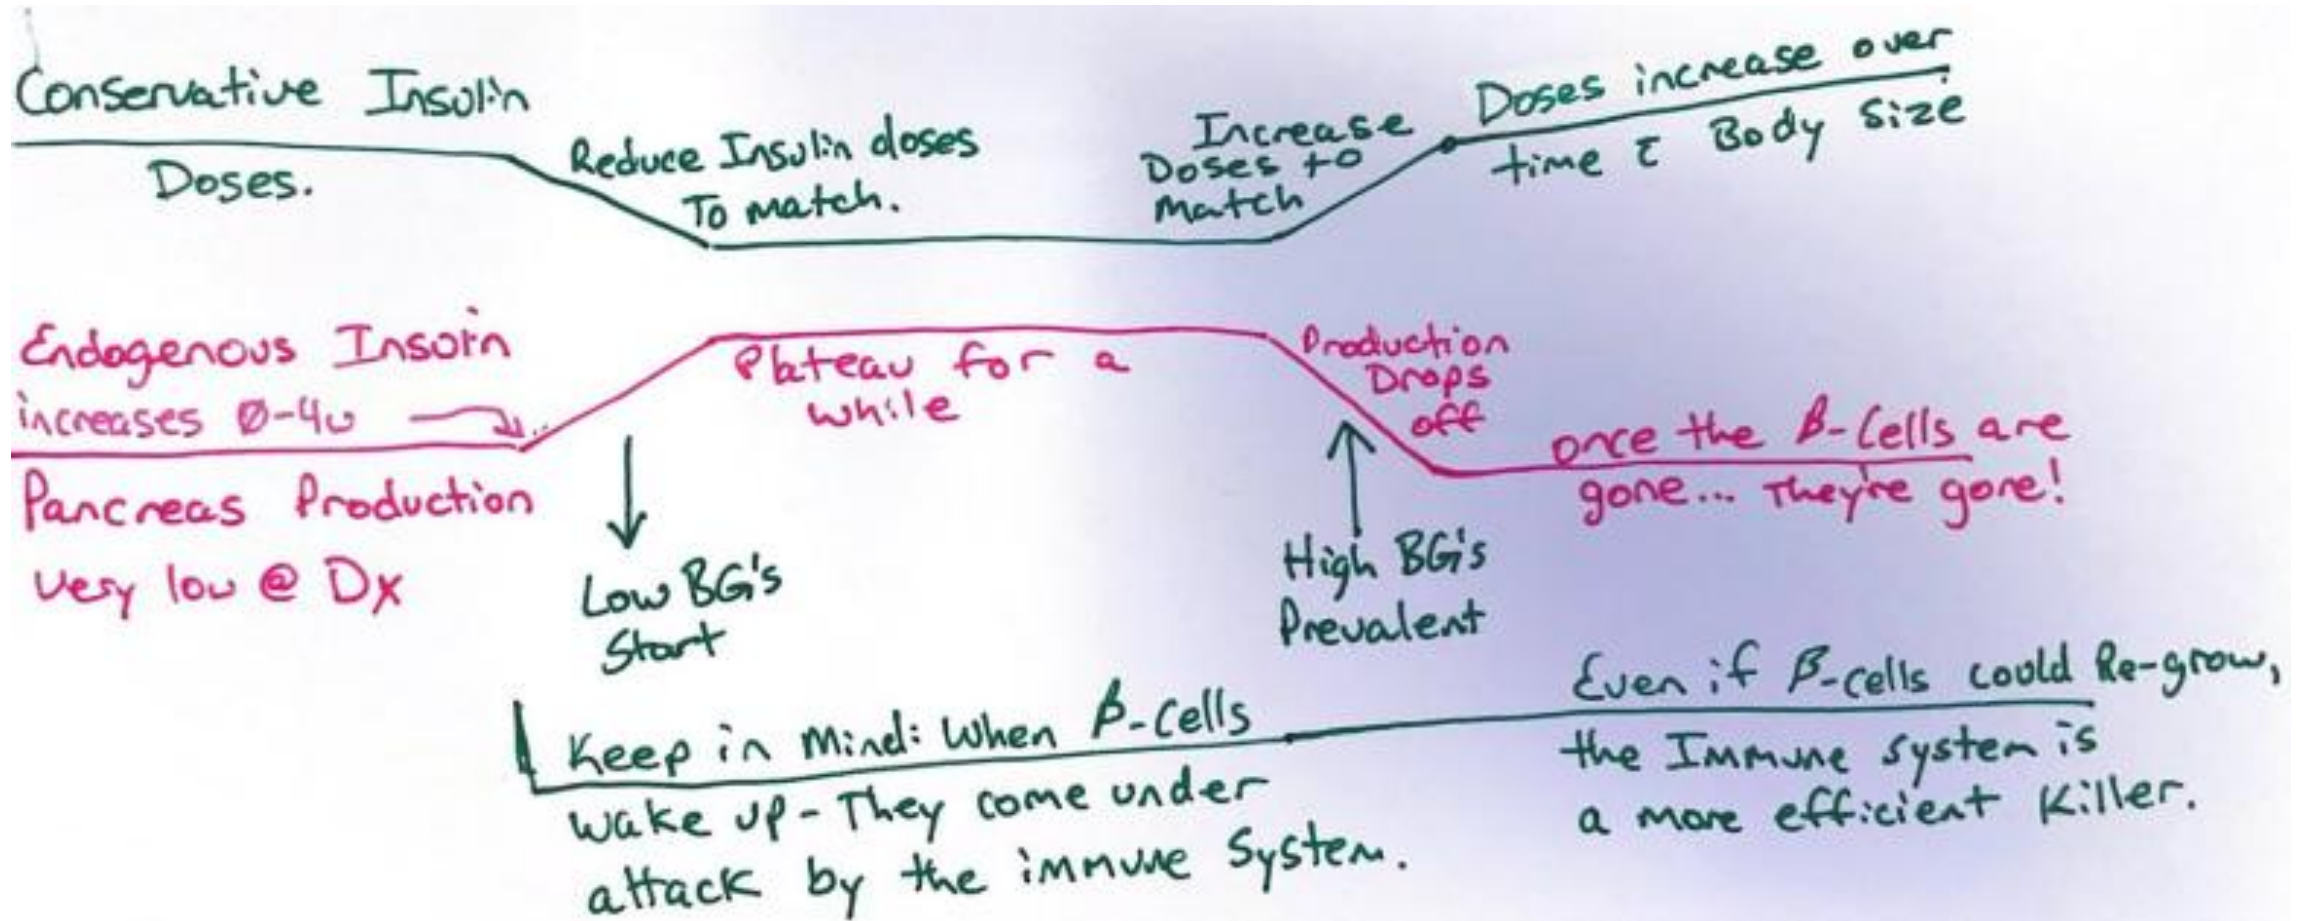 Conservative Insulin
Doses.
Reduce Insulin doses
To match.
Increase
Doses to
Match
Doses increase over
time c̄ Body Size
Endogenous Insulin
increases Ø-4u
Pancreas Production
very low @ Dx
Plateau for a
while
Production
Drops
off
once the β-Cells are
gone... They're gone!
Low BG's
Start
High BG's
Prevalent
Keep in Mind: When β-Cells
wake up - They come under
attack by the immune System.
Even if β-cells could Re-grow,
the Immune system is
a more efficient Killer.